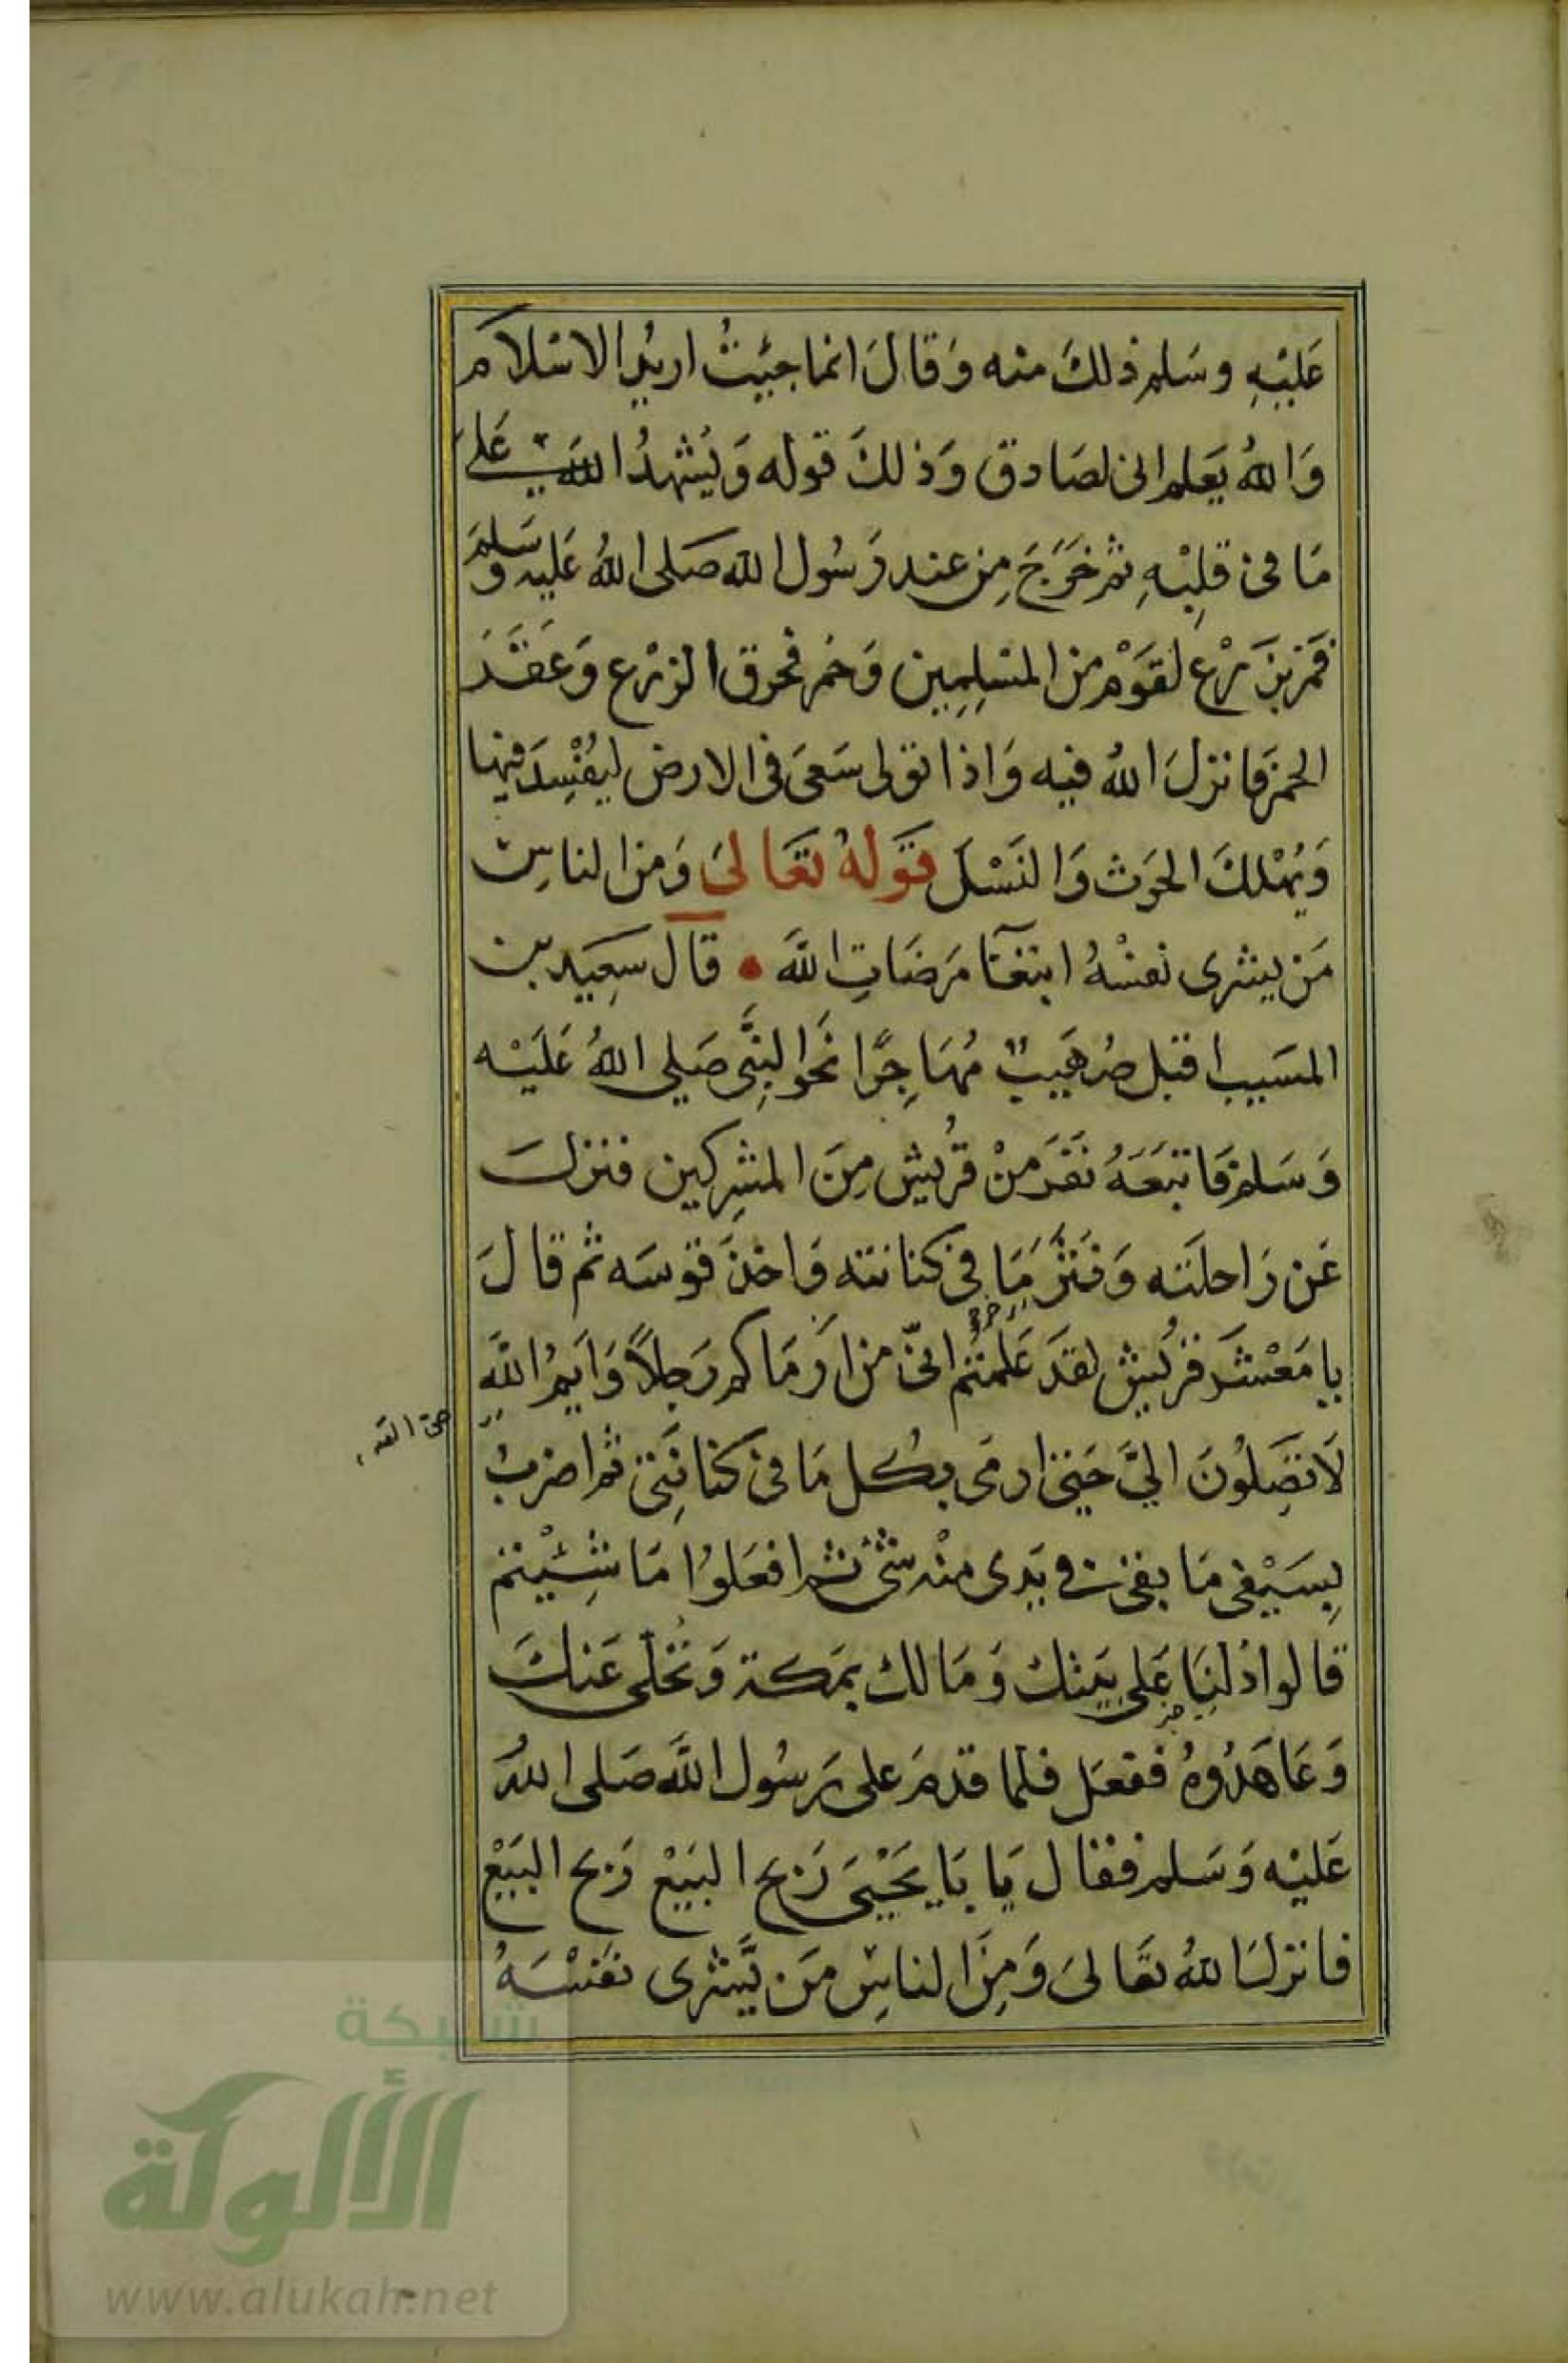 عَلَيْهِ وسَلم ذلكَ منه وَقالَ انما جيْتُ اريدُ الاسْلام
وَاللهُ يَعلم انى لصَادق وَذلكَ قوله وَيُشهدُ اللهَ عَلىَ
مَا فى قلِبْهِ ثم خَرَجَ مِن عند رَسُول الله صَلى اللهُ عَليه وسَلمَ
فمَر بزَرْع لقَوْم من المسْلِمِين وَحُمر فحرق الزرْع وَعَقَرَ
الحمرَ فانزلَ اللهُ فيه وَاذا تولى سَعىَ فى الارض ليُفْسِدَ فيها
وَيُهْلكَ الحَرث وَالنَسْلَ قوَلهُ تعَالىَ وَمن الناسِ
مَن يشرى نفسْهُ ابتغآ مَرضَاتِ اللهَ • قال سَعِيَد بن
المسَيب اقبل صُهَيبٌ مُهَاجِرًا نحَو النِبَّى صَلى اللهُ عَلَيْه
وَسَلم فاتبَعَهُ نفَرَ منْ قرُيش مِنَ المشِركين فنزلَ
عَن رَاحلَته وَنَثرَ مَا فى كنانته وَاخذَ قوسَه ثم قالَ
يا مَعْشَر قرُيش لقدَ عَلمتُم انىّ من ارَمَاكم رَجلاً وَايمُ اللهِ
لاَ تصَِلوُنَ اليَّ حَتى ارمى بكُل مَا فى كنانِتَى ثم اضربُ
بِسَيْفى مَا بقى فى يَدى منْه شئ ثم افعَلوُا مَا شِئيْتم
قالوا دُلنِاَ عَلى بيَتك وَمَالك بمَكة وَنُخلّى عَنكَ
وَعَاهَدُوهُ ففعَل فلما قدمَ على رَسُول اللهَ صَلى اللهُ
عَليْه وَسَلم فقال يَا بَا يَحَيْىَ رَبح البَيَعْ رَبح البَيَعْ
فانزلَ اللهُ تعَالىَ وَمِنَ الناسِ مَن يَّشرى نفَسْهَُ
شبكة
الألوكة
www.alukah.net